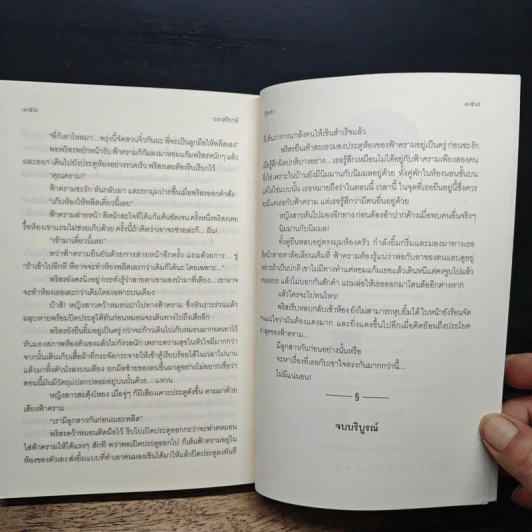 ๓๕๖
วงกตริษาห์
"พี่ก็เอาไหลมา... พรุ่งนี้จัดสวนจิ๋วกันนะ พี่จะเป็นลูกมือให้พลีสเอง"
พอพริสรพยักหน้ารับ ฟ้าครามก็ก้มลงมาหอมแก้มพริสรหนักๆ แล้ว
ผละออก เดินไปยังประตูห้องอย่างรวดเร็ว พริสรเลยต้องรีบเรียกไว้
"คุณคราม!"
ฟ้าครามชะงัก หันกลับมา และยกมุมปากขึ้นเมื่อพริสรออกคำสั่ง
"เก็บห้องให้พลีสเดี๋ยวนี้เลย"
ฟ้าครามส่ายหน้า สีหน้าสะใจที่ได้แก้แค้นชัดเจน ครั้งหนึ่งพริสรเคย
รื้อห้องเขาแถมไม่ช่วยเก็บด้วย ครั้งนี้ถ้าคิดว่าเขาจะช่วยล่ะก็... ฝัน!
"เข้ามาเดี๋ยวนี้เลย"
ทว่าฟ้าครามยืนยันด้วยการส่ายหน้าอีกครั้ง แถมด้วยการ... ขู่
"ถ้าเข้าไปอีกที พี่อาจจะทำห้องพลีสเละกว่าเดิมก็ได้นะ โดยเฉพาะ..."
พริสรยังคงนิ่งอยู่ กระทั่งรู้ว่าสายตาเขามองนำมาที่เตียง... เขาอาจ
จะทำห้องเธอเละกว่าเดิมโดยเฉพาะบนเตียง
บ้าสิ! หญิงสาวคว้าหมอนเขวี้ยงไปทางฟ้าคราม ซึ่งหัวเราะร่วนแล้ว
ผลุบหายพร้อมปิดประตูก่อนที่หมอนจะเดินทางไปถึงเสียอีก
พริสรยังยืนยิ้มอยู่เป็นครู่ กว่าจะก้าวเดินไปเก็บหมอนมากอดเอาไว้
หันมองสภาพห้องตัวเองแล้วไม่กังวลนัก เพราะความสุขในหัวใจมีมากกว่า
จากนั้นเดินเก็บเสื้อผ้าที่กระจัดกระจายให้เข้าตู้เรียบร้อยได้ในเวลาไม่นาน
แล้วมาทิ้งตัวนั่งลงบนเตียง ยกมือซ้ายของตนขึ้นมาดูอย่างไม่อยากเชื่อว่า
ตอนนี้มันมีวัตถุแปลกปลอมอยู่บนนั้นด้วย... แหวน
หญิงสาวสะดุ้งโหยง เมื่อจู่ๆ ก็มีเสียงเคาะประตูดังขึ้น ตามมาด้วย
เสียงฟ้าคราม
"เรามีลูกสาวกันก่อนเนอะพลีส"
พริสรคว้าหมอนติดมือไว้ รีบไปเปิดประตูออกกะว่าจะฟาดหมอน
ใส่ฟ้าครามให้ได้แรงๆ สักที ทว่าพอเปิดประตูออกไป ก็เห็นฟ้าครามอยู่ใน
ห้องของตัวเอง ส่งยิ้มแบบที่ทำเอาคนมองเขินได้มาให้แล้วปิดประตูลงทันที
๓๕๗
ที่เห็นว่าการแกล้งคนให้เขินสำเร็จแล้ว
พริสรเป็นเฝ้าสะเอวมองประตูห้องของฟ้าครามอยู่เป็นครู่ ก่อนชะงัก
เมื่อรู้สึกผิดปกติบางอย่าง... เธอรู้สึกเหมือนไม่ได้อยู่กับฟ้าครามเพียงสองคน
ใช่ เพราะในบ้านยังมีนิมมานกับนิมมลอยู่ด้วย ทั้งคู่พักในห้องนอนชั้นบน
แต่ไม่ใช่แบบนั้น เธอหมายถึงว่าในตอนนี้ เวลานี้ ในจุดที่เธอยืนอยู่นี้ซึ่งควร
มีแค่เธอกับฟ้าคราม แต่เธอรู้สึกว่ามีคนอื่นอยู่ด้วย
หญิงสาวหันไปมองอีกทาง ก่อนต้องอ้าปากค้างเมื่อพบคนอื่นจริงๆ
นิมมานกับนิมมล!
ทั้งคู่ยืนหลบอยู่ตรงมุมห้องครัว กำลังยิ้มกริ่มและมองมาทางเธอ
แล้วใครจะไปทนไหว!
พริสรรีบหลบกลับเข้าห้องยังไม่สามารถหุบยิ้มได้ ใบหน้ายังร้อนจัด
มีลูกสาวกันก่อนอย่างนั้นหรือ
จะหาเรื่องที่เธอกับเขาใจตรงกันมากกว่านี้...
ไม่มีแน่นอน!
§
จบบริบูรณ์